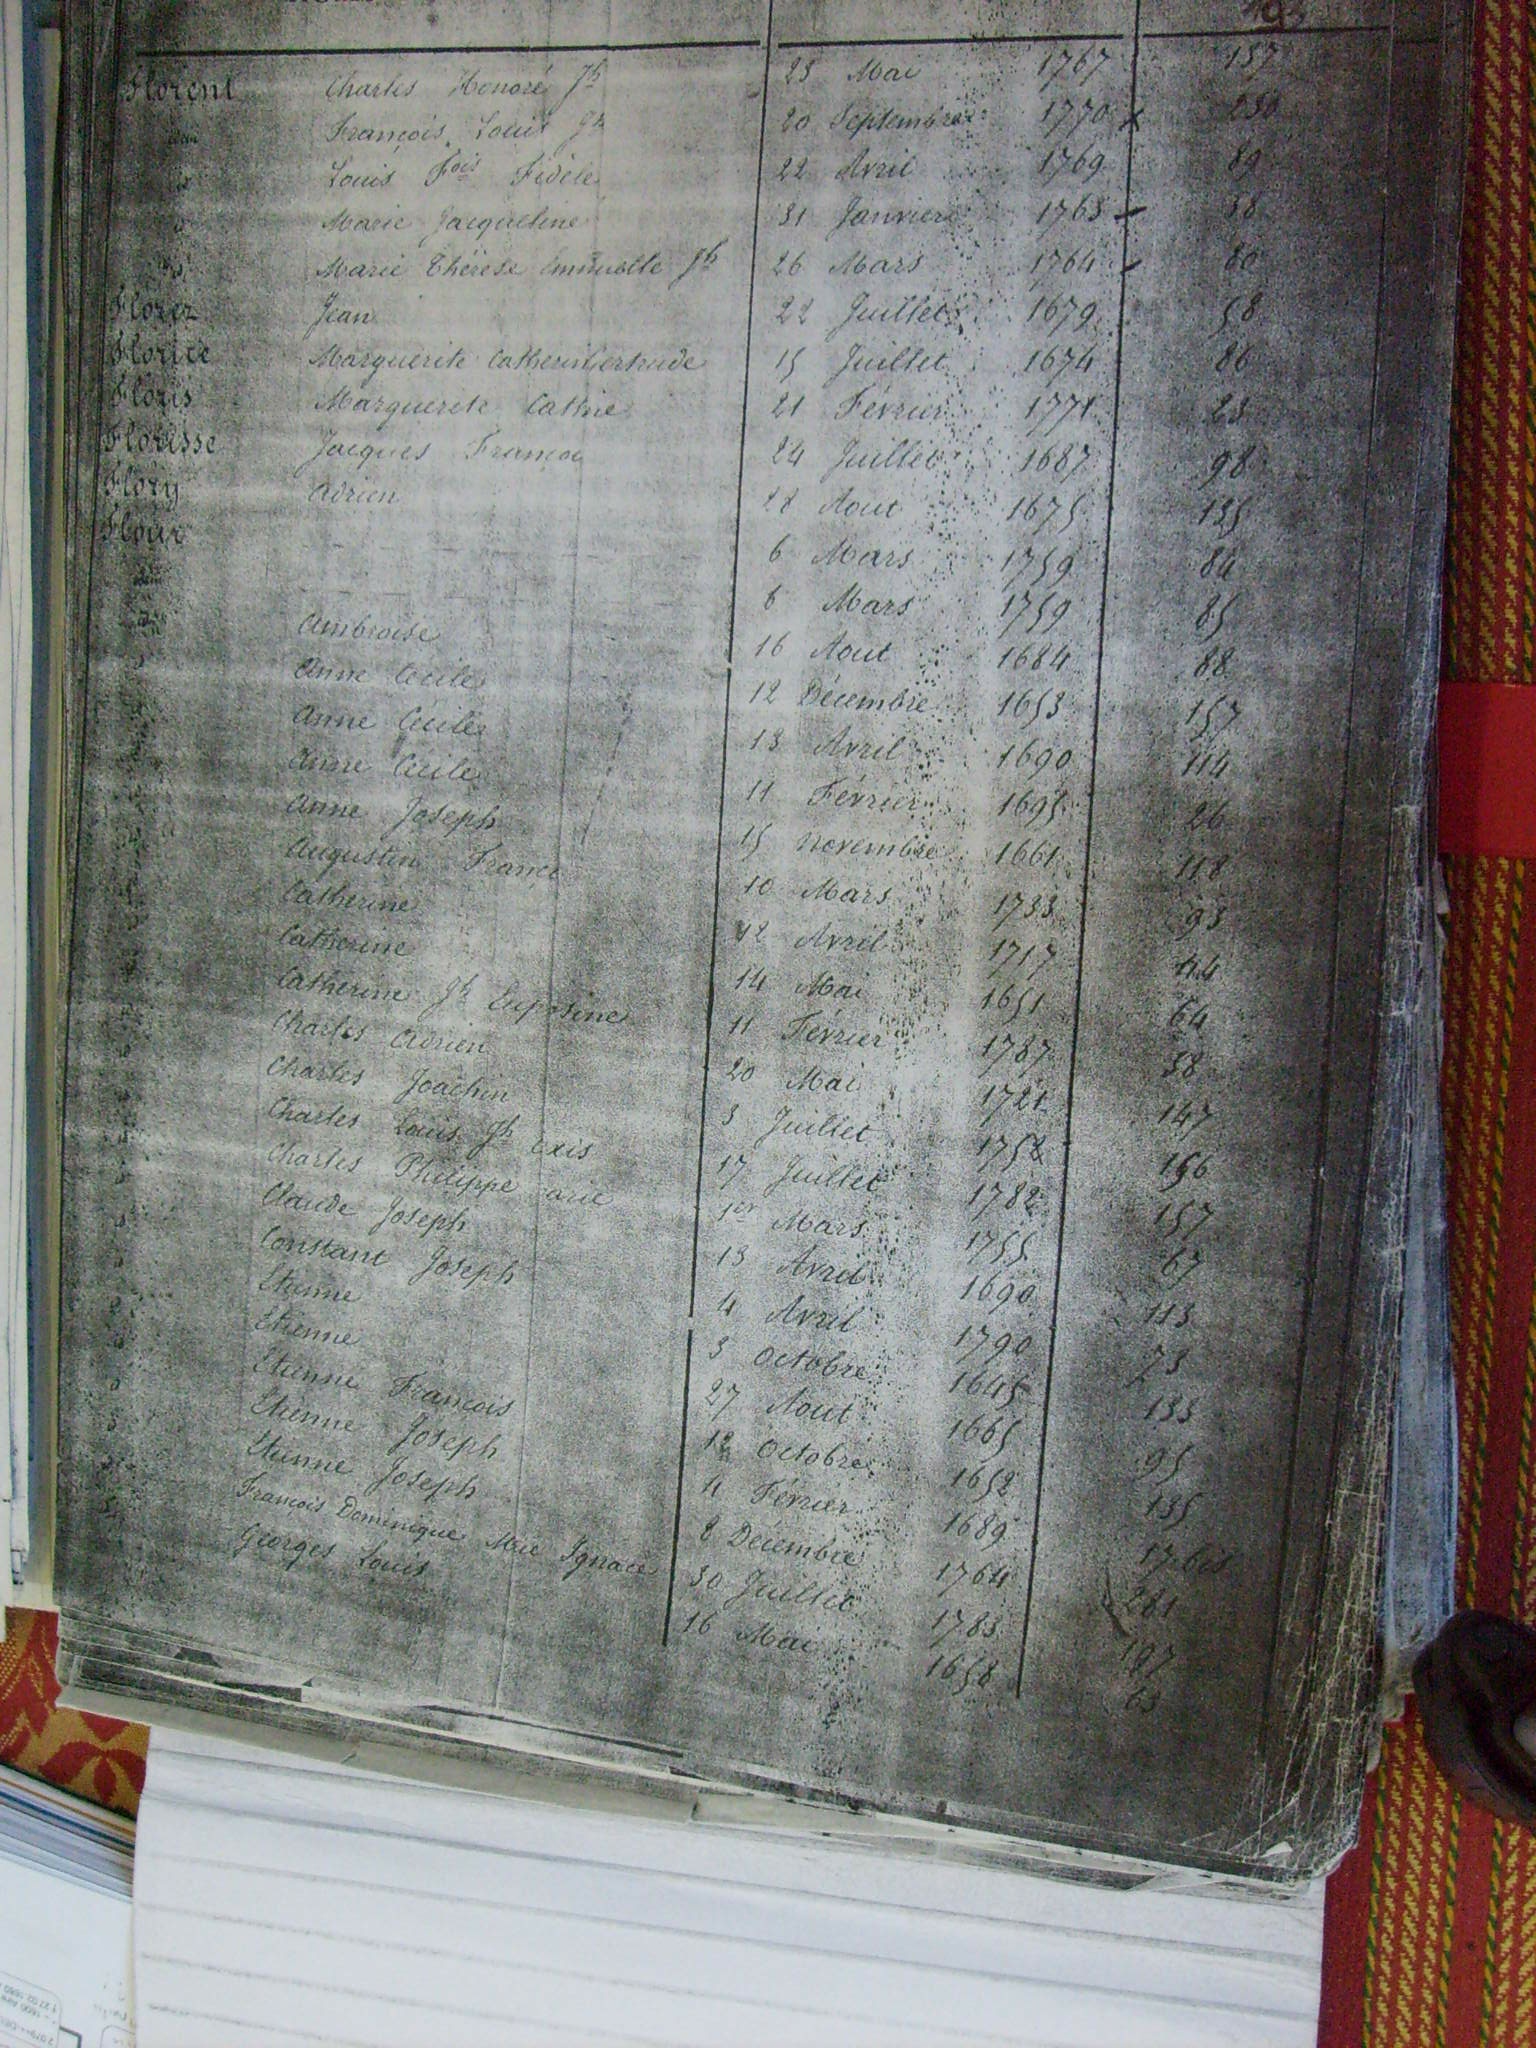 Florent Charles Honoré Jh 23 Mai 1767 157
idem François Louis Jh 20 Septembre 1770 x 230
id Louis Fois Fidèle 22 Avril 1769 89
id Marie Jacqueline 31 Janvier 1763 - 38
id Marie Thérèse Emmuelle Jh 26 Mars 1764 - 80
Florez Jean 22 Juillet 1679 58
Florice Marguerite Catherin Gertrude 15 Juillet 1674 86
Floris Marguerite Cathne 21 Février 1771 23
Florisse Jacques Françs 24 Juillet 1687 98
Flory Adrien 28 Aout 1675 135
Flour 6 Mars 1759 84
idem 6 Mars 1759 85
idem Ambroise 16 Aout 1684 88
Anne Cécile 12 Décembre 1653 157
Anne Cécile 13 Avril 1690 114
Anne Cécile 11 Février 1695 26
Anne Joseph 15 Novembre 1661 118
Augustin Françs 10 Mars 1733 93
Catherine 12 Avril 1717 44
Catherine 14 Mai 1651 64
Catherine Jh 11 Février 1787 38
Charles Adrien 20 Mai 1721 147
Charles Joachin 3 Juillet 1752 156
Charles Louis Jh 17 Juillet 1782 157
Charles Philippe 1er Mars 1755 67
Claude Joseph 13 Avril 1690 113
Constant Joseph 4 Avril 1790 73
Etienne 3 Octobre 1645 133
Etienne 27 Aout 1665 95
Etienne François 12 Octobre 1652 135
Etienne Joseph 11 Février 1689 17 bis
Etienne Joseph 8 Décembre 1764 281
François Dominique Mrie Ignace 30 Juillet 1783 197
Georges Louis 16 Mai 1658 63